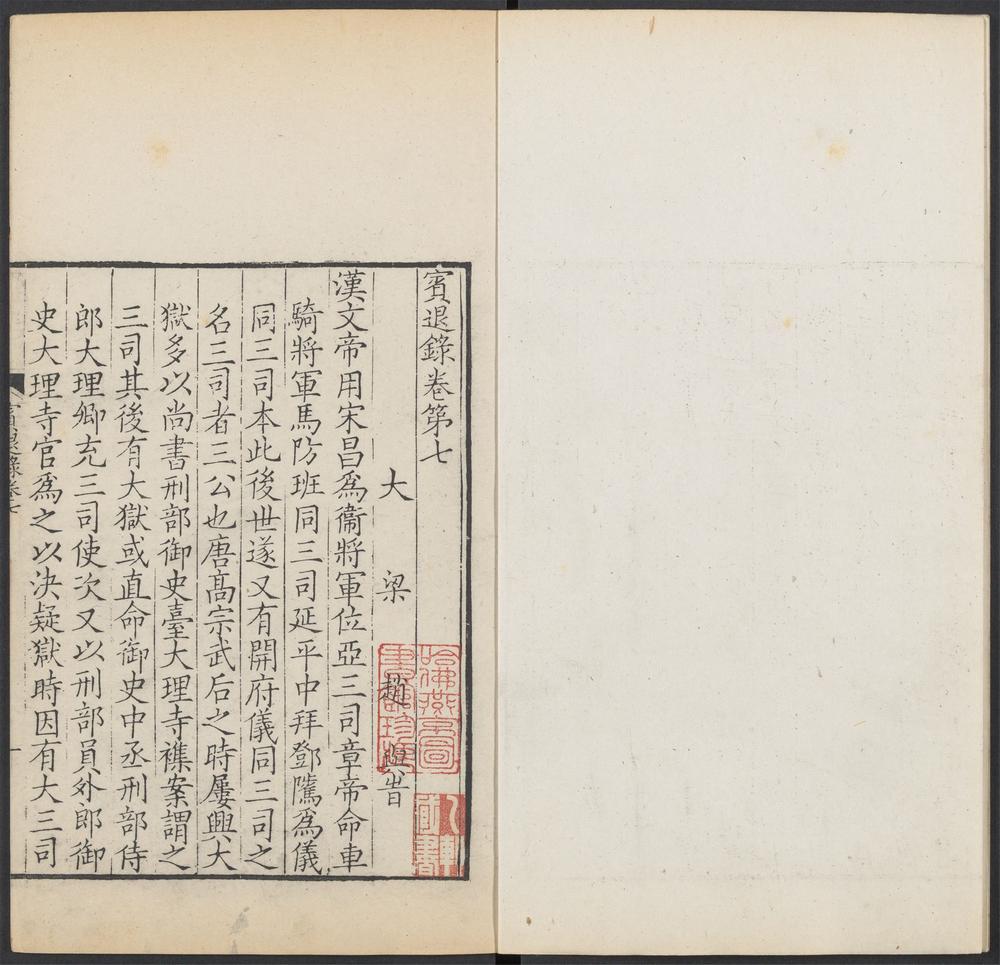 賓退錄卷第七
大梁趙與旹
漢文帝用宋昌爲衞將軍位亞三司章帝命車
騎將軍馬防班同三司延平中拜鄧騭爲儀
同三司本此後世遂又有開府儀同三司之
名三司者三公也唐高宗武后之時屢興大
獄多以尚書刑部御史臺大理寺襍案謂之
三司其後有大獄或直命御史中丞刑部侍
郎大理卿充三司使次又以刑部員外郎御
史大理寺官爲之以決疑獄時因有大三司
賓退錄卷七
一
哈佛燕京圖
書館珍